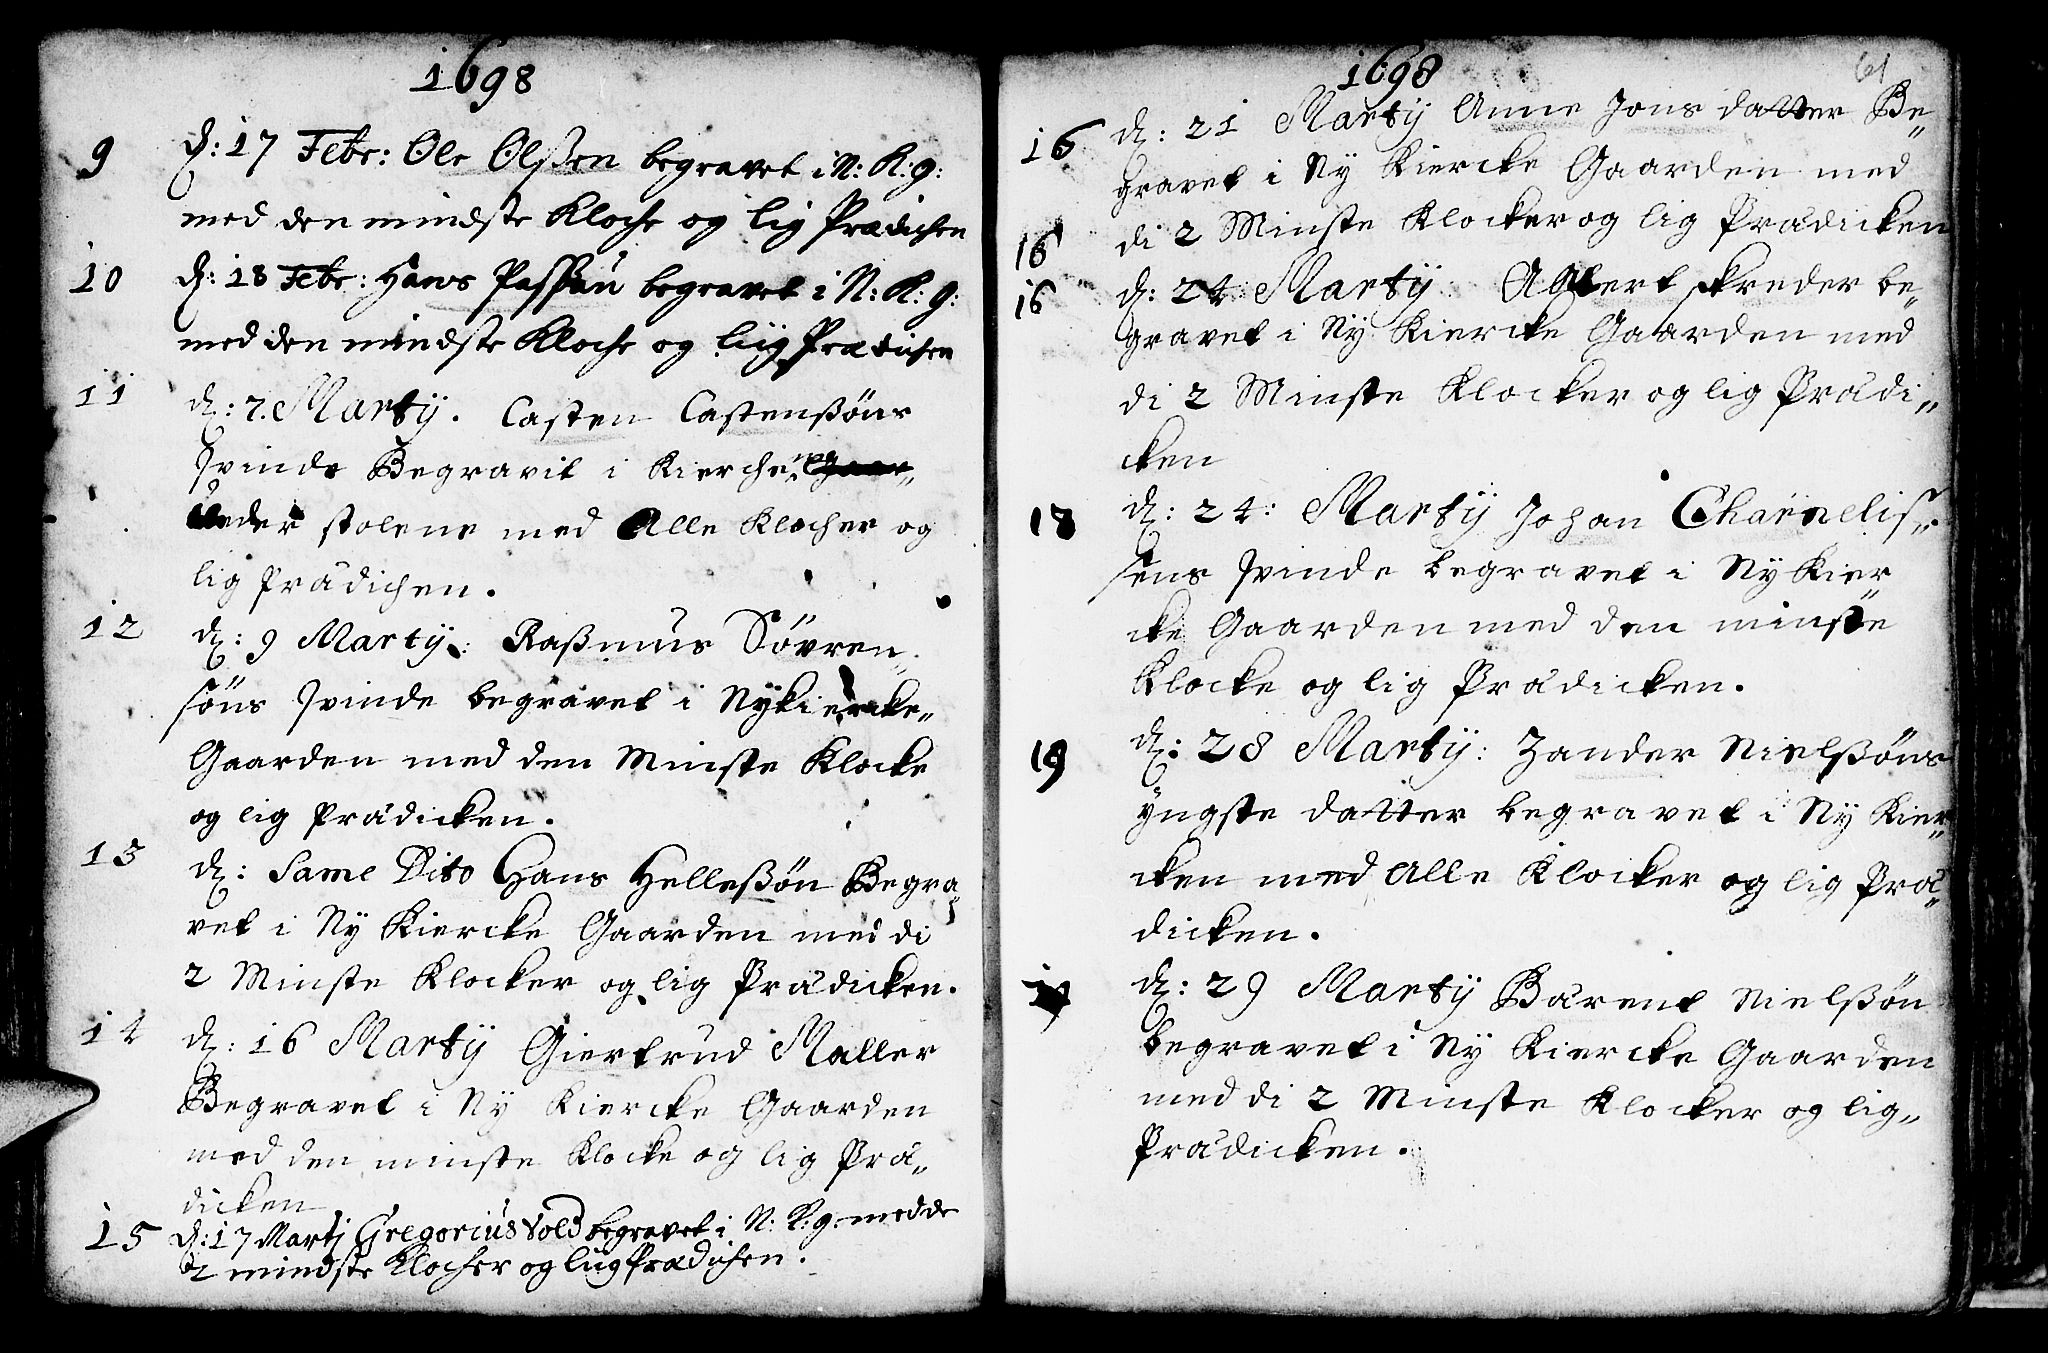 1698
9 d: 17 Febr: Ole Olßen begravet i N: K: g:
med den mindste Kloche og lig Prædichen
10 d: 18 Febr: Hans Paspau begravet i N: K: g:
med den mindste Kloche og liig Prædichen
11 d: 7. Martij. Casten Castenßöns
qvinde Begravit i Kierchen
under stolene med Alle Klocher og
lig Prädichen.
12 d: 9 Martij: Raßmus Sövren„
söns qvinde begravet i Nykiercke„
Gaarden med den Minste Klocke
og lig Prädicken.
13 d: Same Dito Hans Helleßön Begra„
vet i Ny Kiercke Gaarden med di
2 Minste Klocker og lig Prädicken.
14 d: 16 Martij Giertrud Maller
Begravet i Ny Kiercke Gaarden
med den minste Klocke og lig Prä„
dicken
15 d: 17 Martj Gregorius Vold begravet i N: K: g: med de
2 mindste Klocher og liig Prædichen.
1698
61
16 d: 21 Martij Anne Jons datter Be„
gravet i Ny Kiercke Gaarden med
16 di 2 Minste Klocker og lig Prädicken
16 d: 24 Martij Albert skreder be„
gravet i Ny Kiercke Gaarden med
di 2 Minste Klocker og lig Prädi„
cken
18 d: 24: Martij Johan Charnelis„
sens qvinde begravet i Ny Kier„
cke Gaarden med den minste
Klocke og lig Prädicken.
19 d: 28 Martij: Zander Nielßöns
yngste datter begravet i Ny Kier„
cken med Alle Klocker og lig Prä„
dicken.
d: 29 Martij Bärent Nielßön
begravet i Ny Kiercke Gaarden
med di 2 Minste Klocker og lig„
Prädicken.